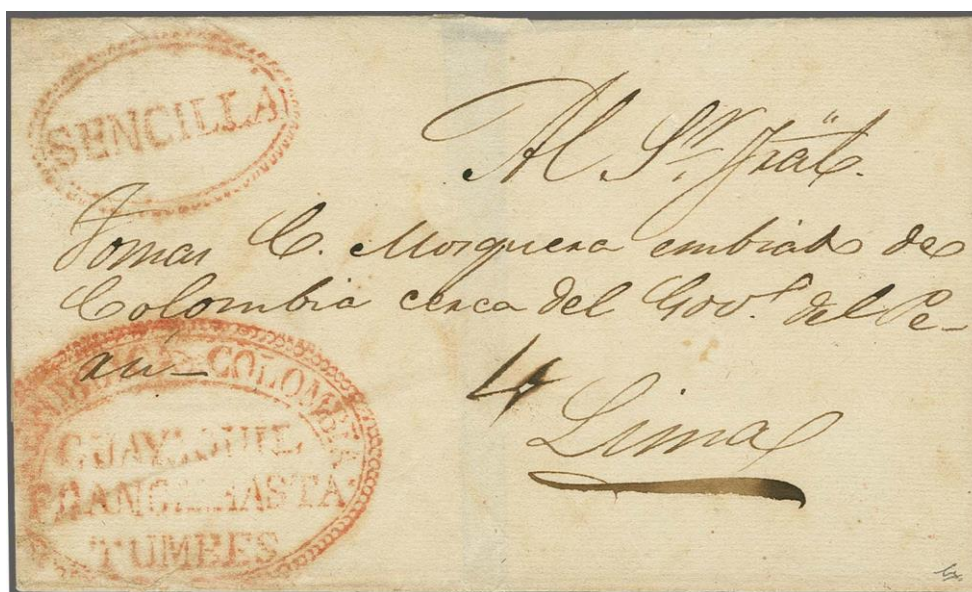 SENCILLA
Al Sr. Gräl.
Tomas C. Mosquera embiado de
Colombia cerca del Govo. del Pe-
rú—
COLOMBIA
GUAYAQUIL
FRANCA HASTA
TUMBES
4
Lima